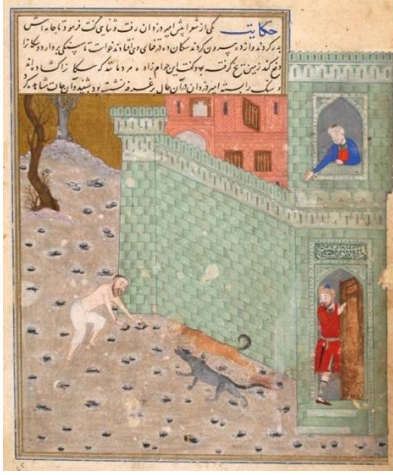 حکایت یکی از شعرا پیش امیر دزدان رفت و ثنایی گفت فرمود تا جامه اش
بدر کردند و از ده بیرون کردند سکان در قفای وی افتادند خواست تا سنکی بردارد و سکانرا
دفع کند زمین یخ گرفته بود گفت این چه حرام زاده مردمانند که سکانرا کشاده اند
و سنک را بسته امیر دزدان در آن حال بر غرفه نشسته بود بشنید و آن حالت مشاهده کرد